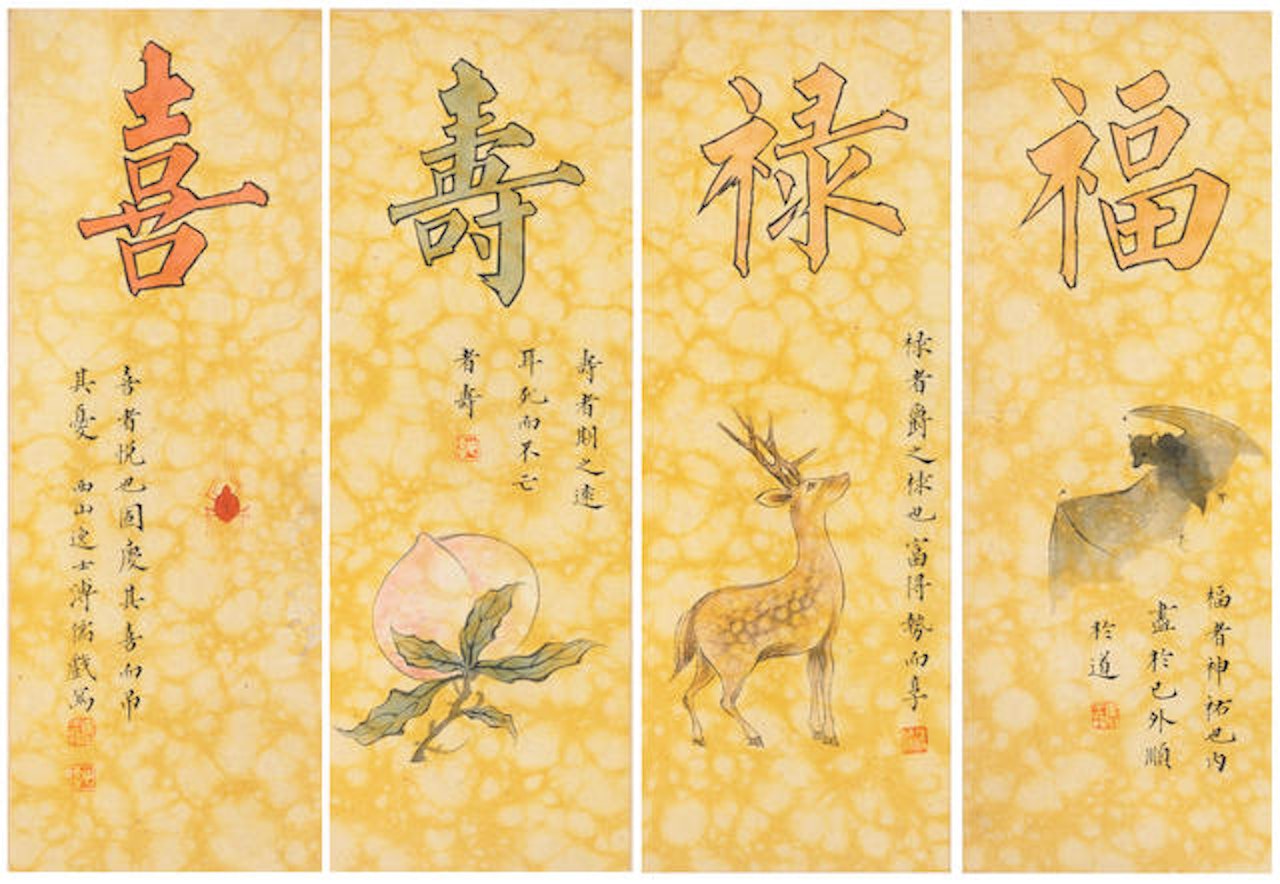 福
福者神祐也内
盡於己外順
於道
禄
禄者爵之也富得勢而享
壽
壽者之遠
耳死而不亡
者壽
喜
喜者悅也固慶其喜而弔
其憂 西山逸士溥儒戲寫